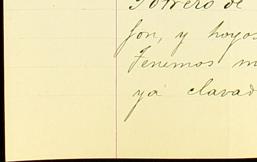 Potrero de
fon, y hoyos
Tenemos m
ya clavad